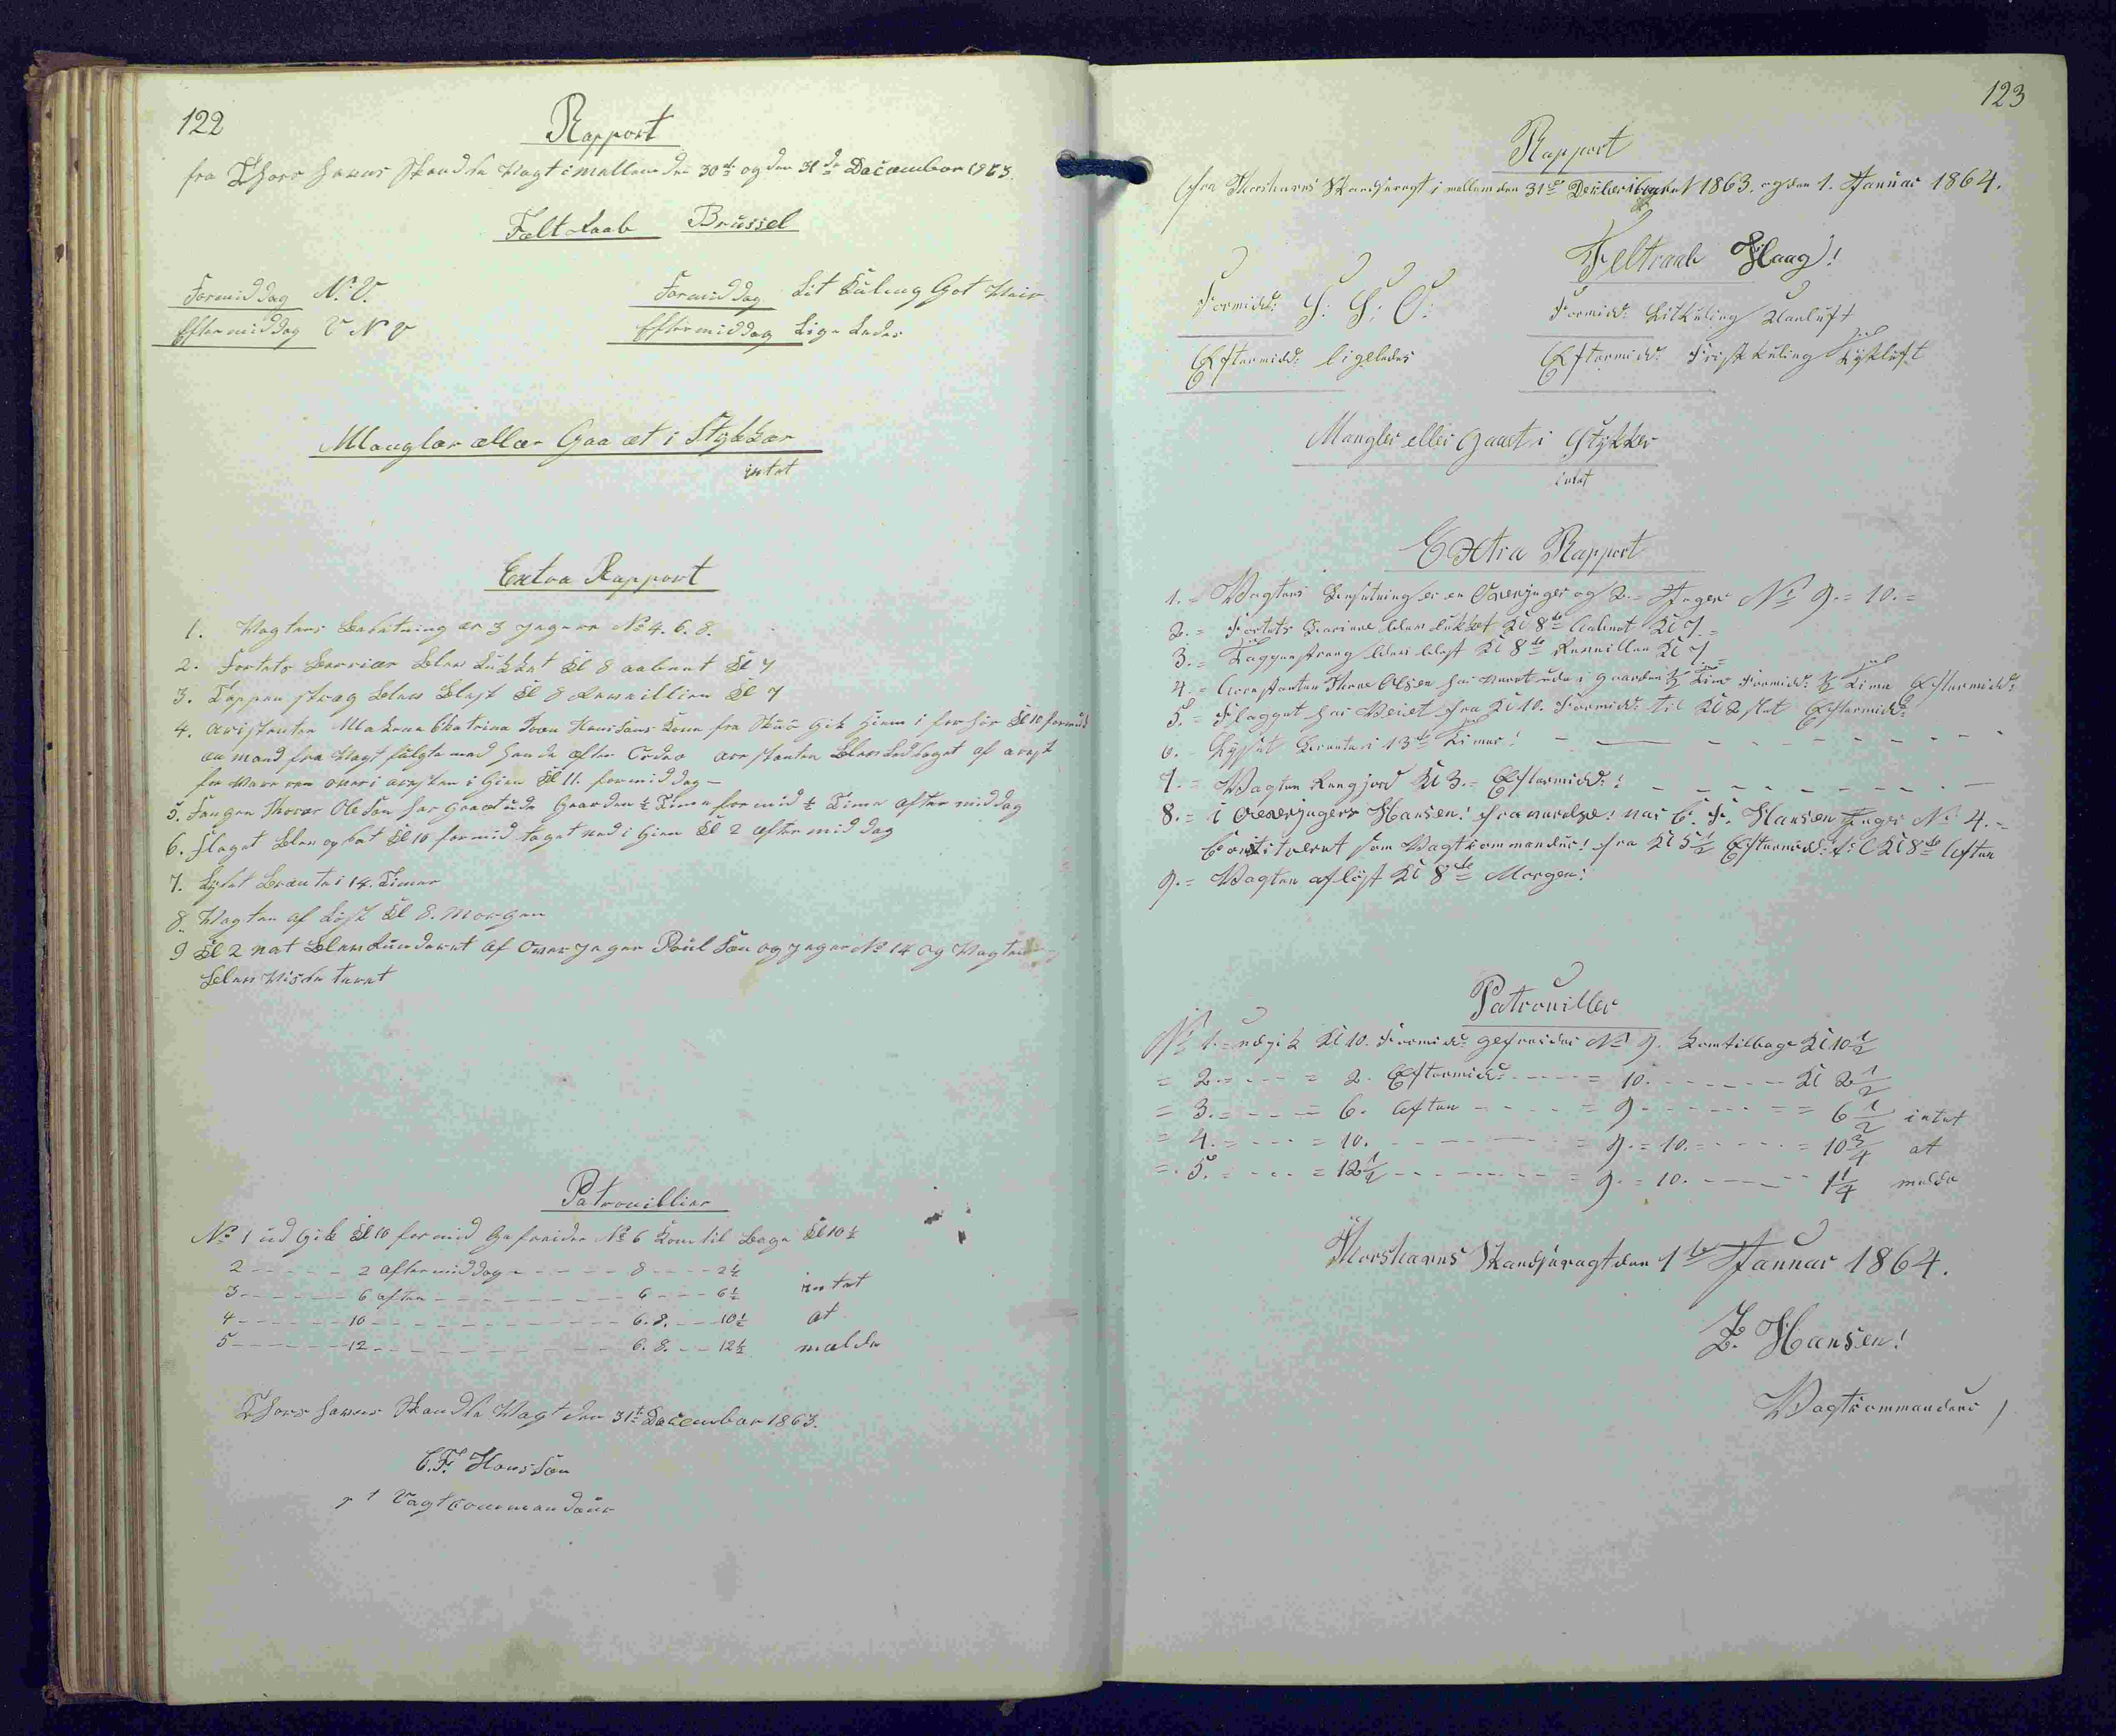 122
Rapport
fra Thorshavns Skandse Vagt imellem den 30te og den 31de December 1863.
Felt Raab Brüssel
Formiddag N.V. Formiddag Lit Kuling Got Veir
Eftermiddag V N V Eftermiddag Lige Ledes
Mangler eller Gaaet i Stykker
intet
Extra Rapport
1. Vagtens Besætning er 3 Jegere No 4. 6. 8.
2. Fortets Barrier Blev Lukket Kl 8 aabnet Kl 7
3. Tappenstræg Blev Blæst Kl 8 Reveillien Kl 7
4. Arrestanten Katrina Hans Sens Kone fra gik Hiem i forhør Kl 10 formid
en mand fra Vagt fulgte med hende efter Ordre arrestanten Blev Ledsaget af arrest
for over i aresten i Gien Kl 11. formiddag –
5. Fangen Thorer Ole Sen har Gaaet ude i Gaarden ½ Time formid ½ Time eftermiddag
6. Flaget Blev opsat Kl 10 formid taget ned i Gien Kl 2 efter mid dag
7. Lyset Brænte i 14. Timer
8. Vagten af Løst Kl 8. Morgen
9 Kl 2 nat Blev Runderet af Over Jeger Poul Sen og Jeger No 14 og Vagten
Blev Visiteret
Patrouillier
No 1 ud Gik Kl 10 formid Gefreider No 6 Kom til Bage Kl 10½
2 - - - - - 2 eftermiddag - - - - - 8 - - - - 2½
3 - - - - - 6 aften - - - - - - - - 6 - - - - 6½ intet
4 - - - - - 10 - - - - - - - - - - 6. 8. - - - 10½ at
5 - - - - - 12 - - - - - - - - - - 6. 8. - - - 12½ melde
Thorshavns Skandse Vagt den 31te December 1863.
C. F. Hans Sen
p t Vagtcommandeur
123
Rapport
fra Thorshavns Skandsevagt i mellem den 31te 1863. og den 1. Januar 1864.
Feltraab Haag!
Formidd: S: S: O: Formidd: Litkuling Uenluft
Eftermidd: ligeledes Eftermidd: Friskkuling Tykluft
Mangler eller Gaaet i Stykker
intet
Extra Rapport
1. = Vagtens Besetning er en Overjeger og 2. = Jeger No 9. = 10. =
2. = Fortets Bariere blev lukket Kl 8te Aabnet Kl 7. =
3. = Tappenstreg blev blest Kl 8te Reveillen Kl 7 =
4. = Arrestanten Thore Olsen har veret ude i gaarden ½ Time Formidd: ½ Time Eftermidd:
5. = Flagget har Veiet fra Kl 10. Formidd: til Kl 2 slet Eftermidd:
6. = Lysset Brente i 13te Timer!
7. = Vagten Rengjord Kl 3. = Eftermidd:!
8. = i Overjegers Hansen! fraverelse! var C. F. Hansen Jeger No 4. =
Constitueret som Vagtcommandeur! fra Kl 5½ Eftermidd: til Kl 8te Aften
9. = Vagten aflöst Kl 8te Morgen!
Patrouiller
No 1. = udgik Kl 10. Formidd: gefreider No 9. Kom tilbage Kl 10½
= 2. = - - - = 2. Eftermidd: - - - - = 10. - - - - - - Kl 2½
= 3. = - - - = 6. Aften - - - - = 9. - - - - - = = 6½ intet
= 4. = - - - = 10. - - - - - - - = 9. = 10. = - - - - = 10¾ at
= 5. = - - - = 12½ - - - - - - - = 9. = 10. - - - - - 1¼ melde
Thorshavns Skandsevagt den 1te Januar 1864.
Z. Hansen!
Vagtcommandeur